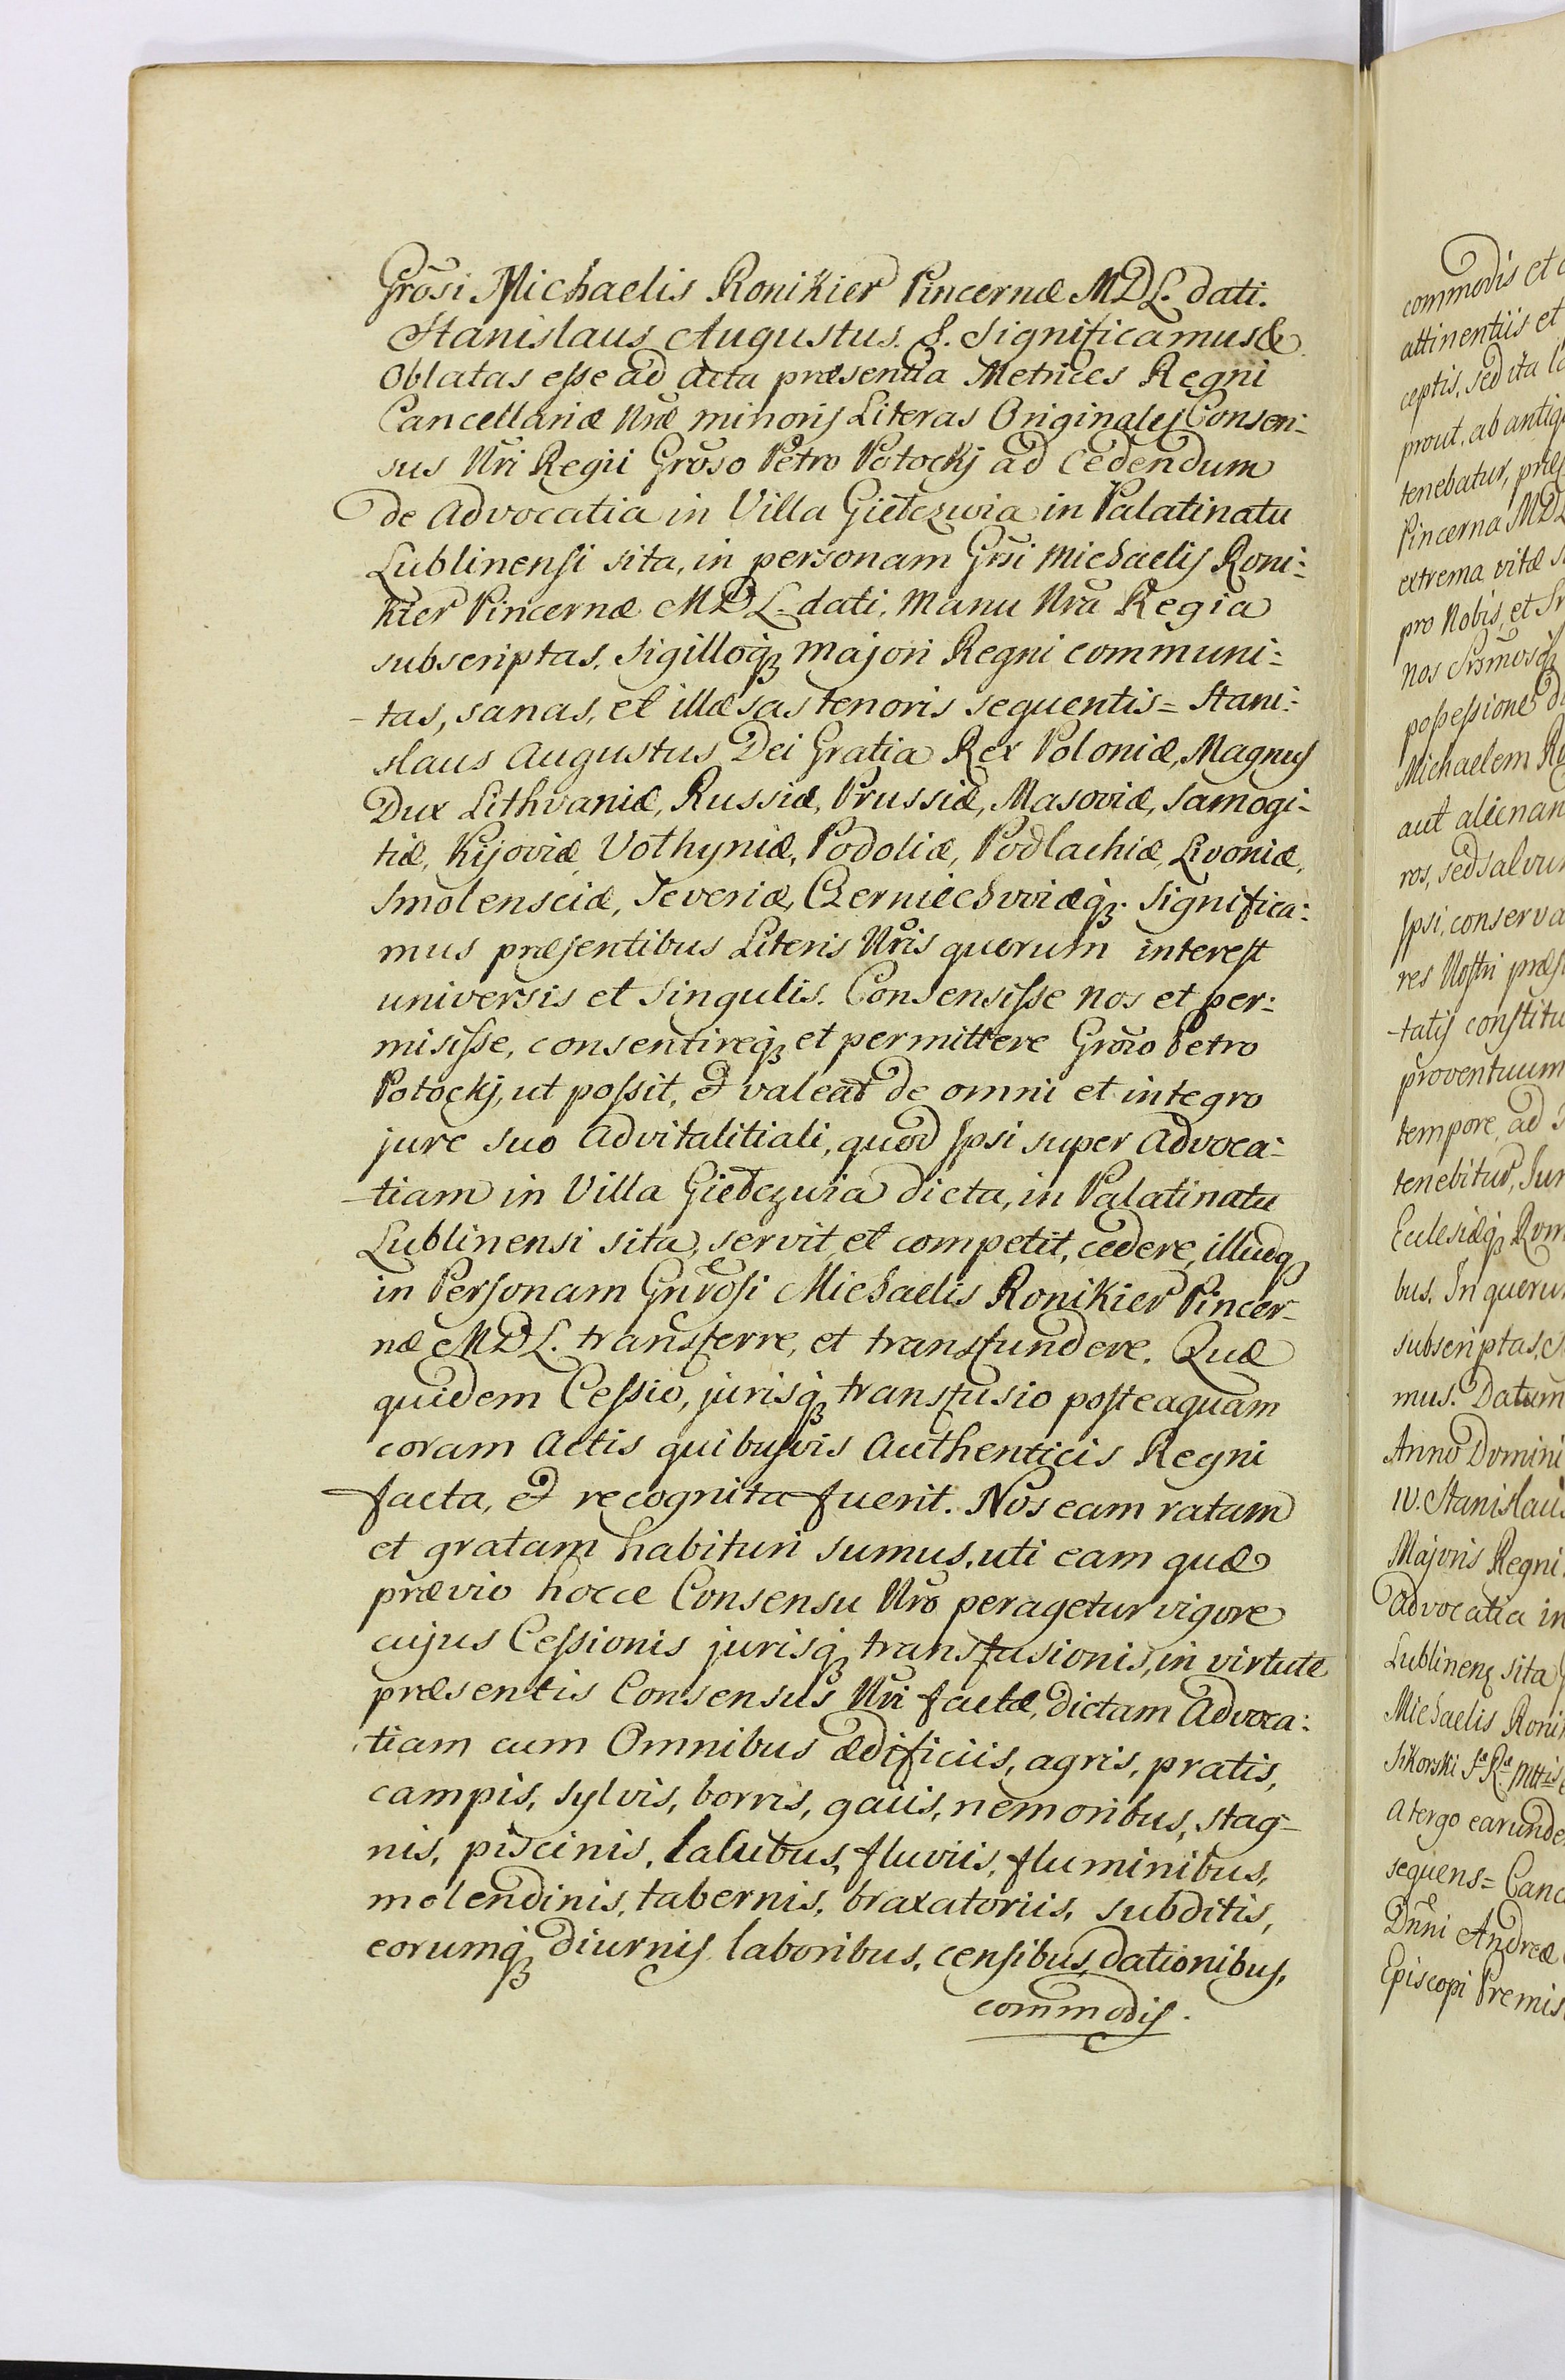 Grõsi Michaelis Ronikier Pincernæ MDL. dati.
Stanislaus Augustus. &. Significamus &
Oblatas eſse ad acta præsentia Metrices Regni
Cancellariæ Nr̃æ minoris Literas Originales Consen:
sus Nr̃i Regii Grõso Petro Potockj ad Cedendum
de Advocatia in Villa Giełczwia in Palatinatu
Lublinensi sita, in personam Gr̃si Michaelis Roni:
kier Pincernæ MDL. dati. Manu Nr̃a Regia
subscriptas. Sigilloq; Majori Regni communi:
-tas, sanas, et illæsas tenoris sequentis = Stani:
slaus Augustus Dei Gratia Rex Poloniæ, Magnus
Dux Lithvaniæ, Russiæ, Prussiæ, Masoviæ, Samogi-
tiæ, Kijoviæ Vołhyniæ, Podoliæ, Podlachiæ, Livoniæ,
Smolensciæ, Severiæ, Czerniechviæq;. Significa:
mus præsentibus Literis Nr̃is quorum interest
universis et Singulis. Consensiſse nos et per:
misiſse, consentireq; et permittere Grõso Petro
Potockj, ut poſsit, & valeat de omni et integro
jure suo Advitalitiali, quod Ipsi super Advoca-
-tiam in Villa Giełczwia dicta, in Palatinatu
Lublinensi sita, servit et competit, cedere, illudq;
in Personam Gnrõsi Michaelis Ronikier Pincer-
næ MDL. transferre, et transfundere. Quæ
quidem Ceſsio, jurisq; transfusio posteaquam
coram Actis quibusvis Authenticis Regni
facta, & recognita fuerit. Nos eam ratam
et gratam habituri sumus, uti eam quæ
prævio hocce Consensu Nr̃o peragetur vigore
cujus Ceſsionis jurisq; transfusionis, in virtute
præsentis Consensus Nr̃i factæ, dictam Advoca:
tiam cum Omnibus ædificiis, agris, pratis,
campis, sylvis, borris, gaiis, nemoribus, stag-
nis, piscinis, lacubus, fluviis, fluminibus,
molendinis, tabernis, braxatoriis, subditis,
eorumq; diurnis laboribus, censibus, dationibus,
commodis.
commodis et
attinentiis et
ceptis, sed ita
prout ab antiq
tenebatur,
Pincerna MDL
extrema vitæ
pro Nobis, et
nos
poſseſsione
Michaelem Ro
aut alienan
ros, sed salvu
Ipsi conserva
res Nostri præs
-tatis constitu
proventuum
tempore ad
tenebitur, Jur
Eclesiæq; Rom
bus. In quoru
subscriptas,
mus. Datum
Anno Domini
IV. Stanislaus
Majoris Regni.
Advocatia in
Lublinen; sita
Michaelis Roni
Sikorski
A tergo earunde
sequens = Canc
Dñni Andreæ
Episcopi Premis